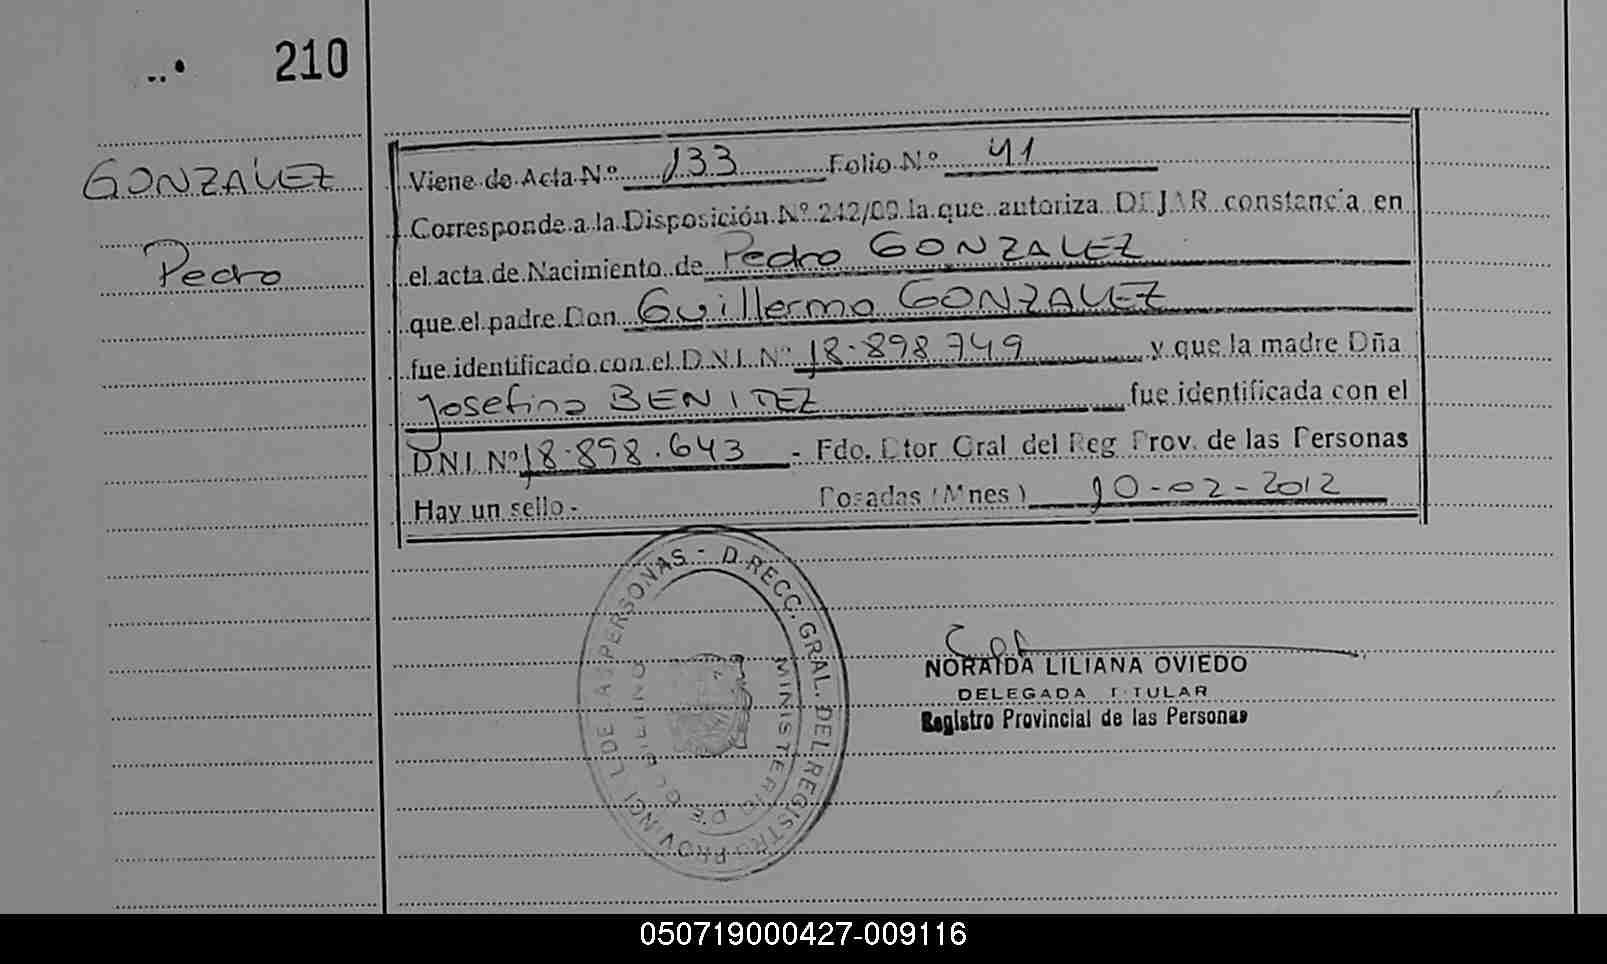 210
GONZALEZ
Pedro
Viene de Acta Nº 133 Folio Nº 41
Corresponde a la Disposición Nº 242/09 la que autoriza DEJAR constancia en
el acta de Nacimiento de Pedro GONZALEZ
que el padre Don Guillermo GONZALEZ
fue identificado con el D.N.I. Nº 18.898.749 y que la madre Dña
Josefina BENITEZ fue identificada con el
DNI Nº 18.898.643 - Fdo. Dtor Gral del Reg Prov. de las Personas
Hay un sello.- Posadas (Mnes) 10-02-2012
DIRECC. GRAL. DEL REGISTRO PROVINCIAL DE LAS PERSONAS -
MINISTERIO DE GOBIERNO
NORAIDA LILIANA OVIEDO
DELEGADA TITULAR
Registro Provincial de las Personas
050719000427-009116